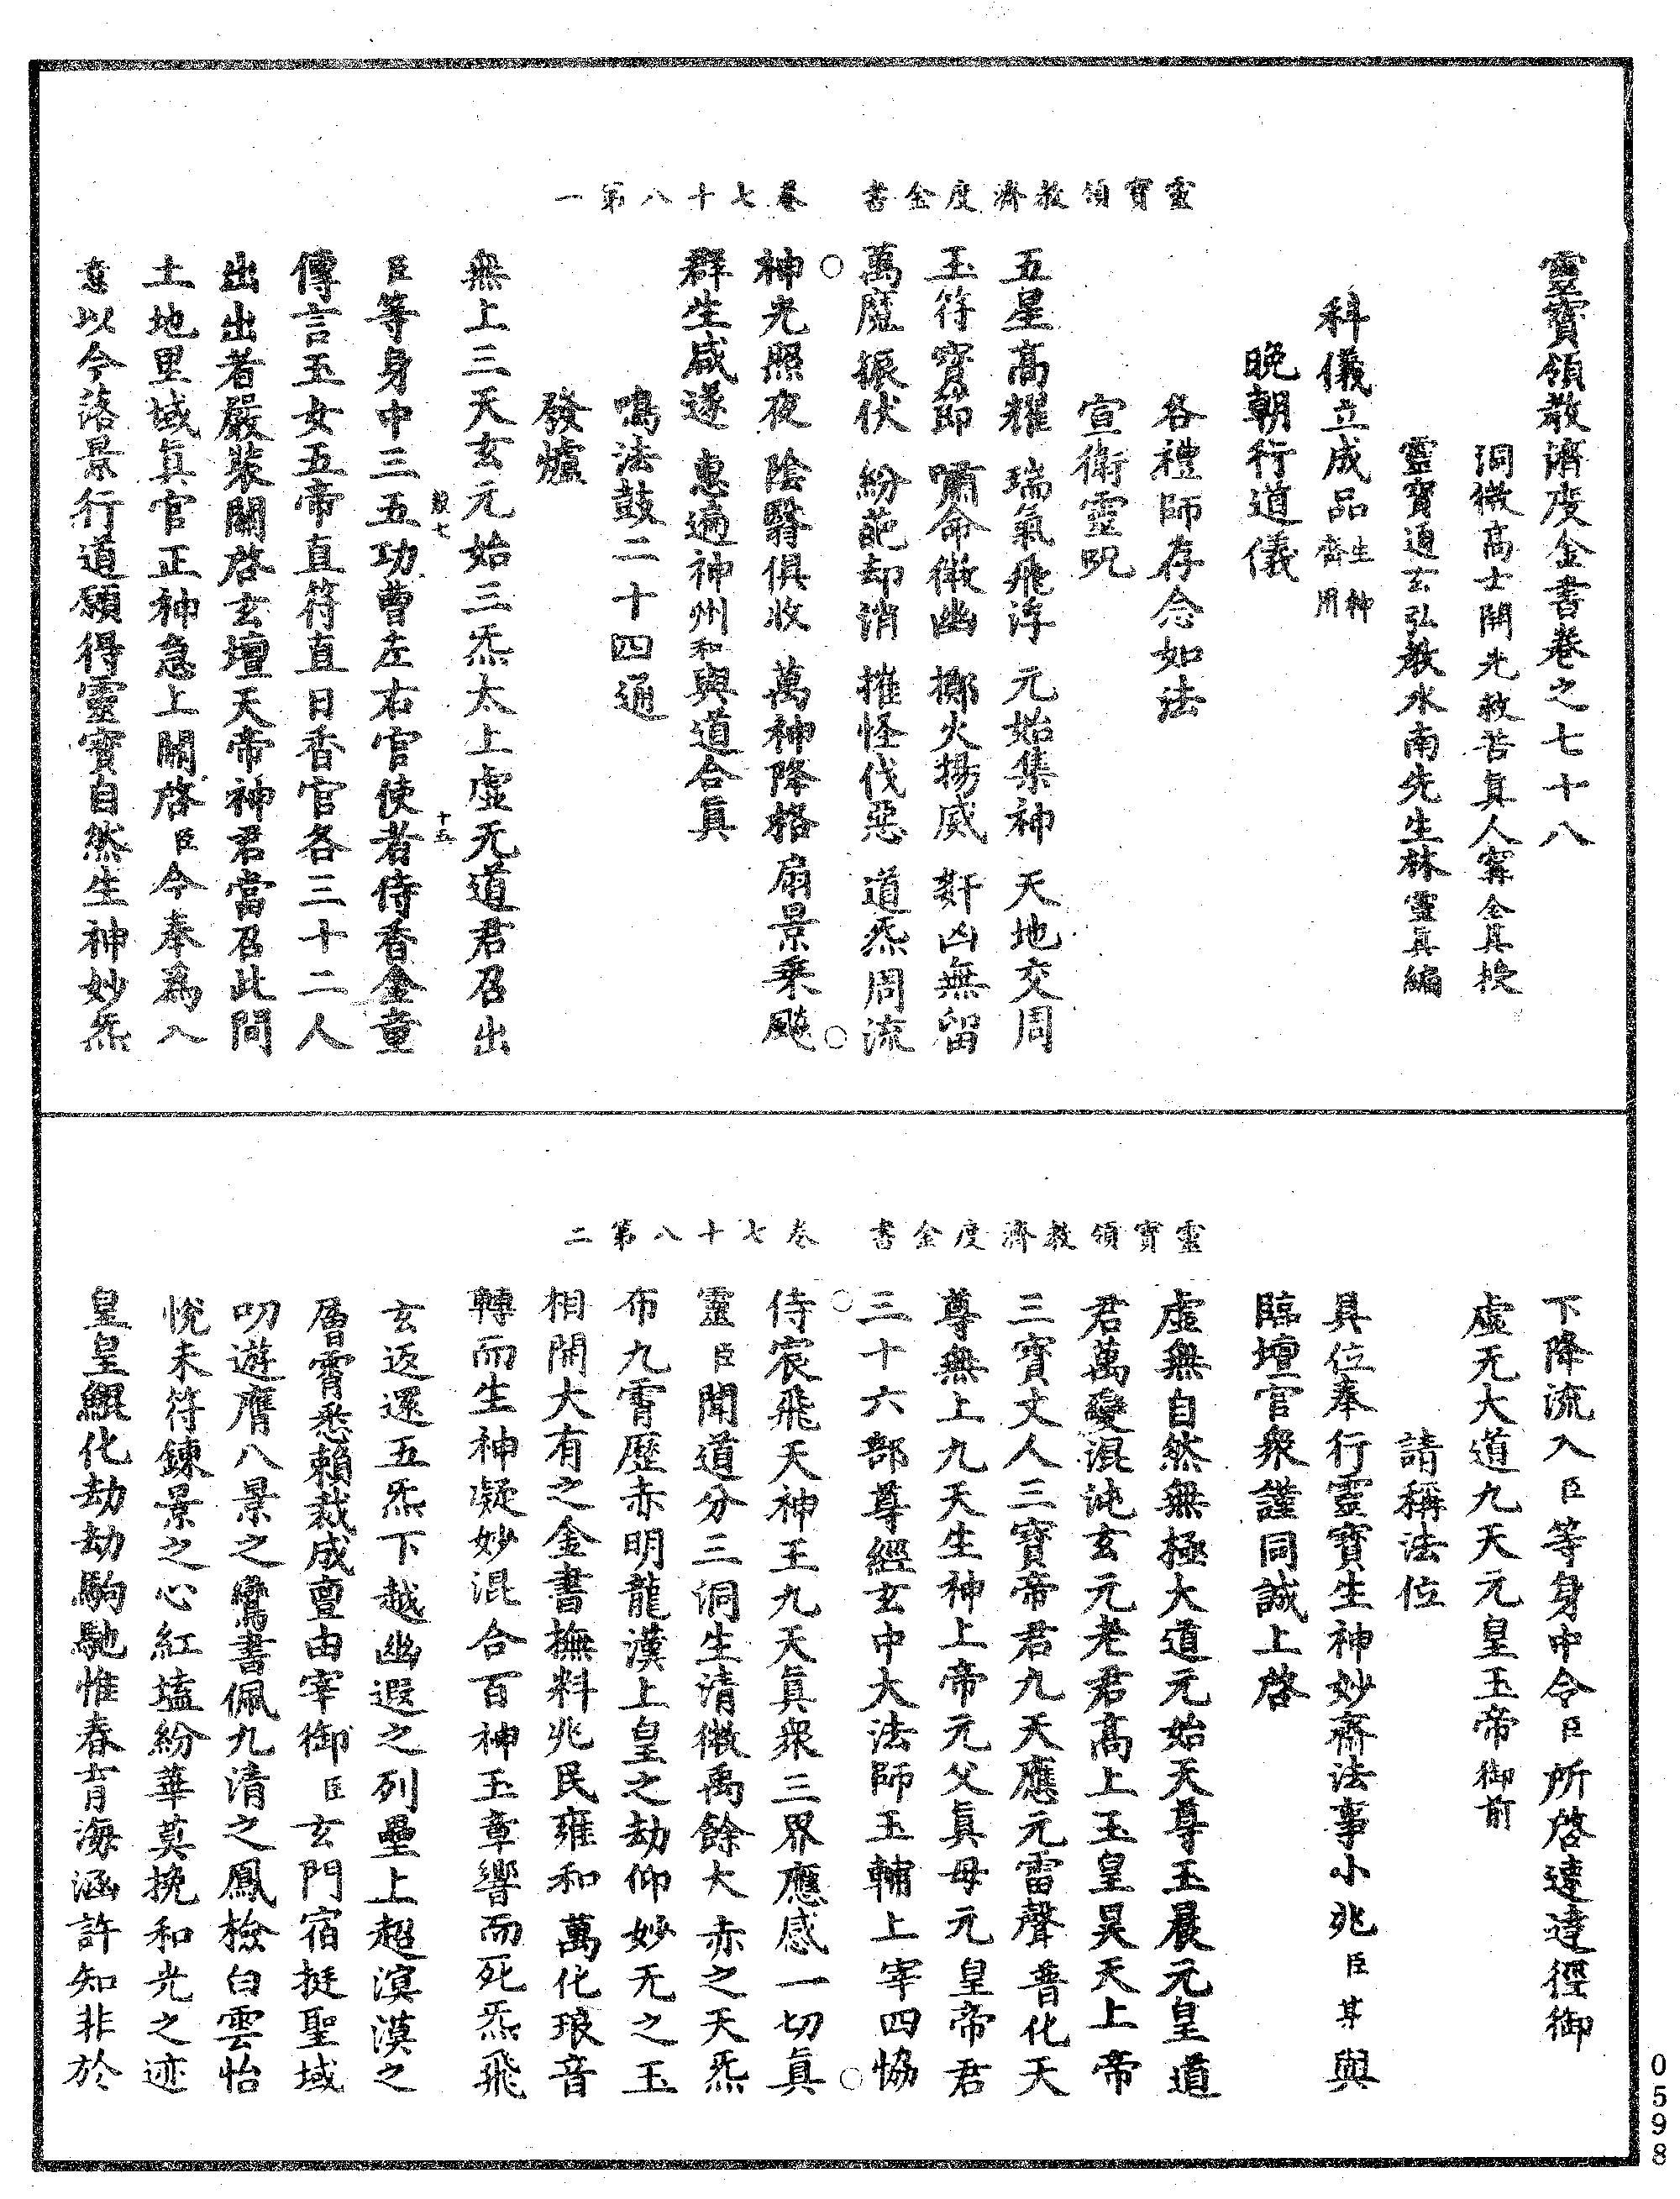 靈寶領教濟度金書　卷七十八第一
靈寶領教濟度金書卷之七十八
洞微高士開光救苦眞人寗全眞授
靈寶通玄弘教水南先生林靈眞編
科儀立成品生神齋用
晚朝行道儀
各禮師存念如法
宣衛靈呪
五星高耀　瑞氣飛浮　元始集神　天地交周
玉符寶節　嘯命徵幽　擲火揚威　奸凶無留
萬魔振伏　紛葩却消　摧怪伐惡　道炁周流
神光照夜　陰翳俱收　萬神降格　扇景乘飈
群生咸遂　惠遍神州和與道合眞
鳴法鼓二十四通
發爐
無上三天玄元始三炁太上虛无道君召出
臣等身中三五功曹左右官使者侍香金童
傳言玉女五帝直符直日香官各三十二人
出出者嚴裝關啓玄壇天帝神君當召此間
土地里域眞官正神急上關啓臣今奉爲入
意以今落景行道願得靈寶自然生神妙炁
靈寶領教濟度金書　卷七十八第二
下降流入臣等身中令臣所啓速達徑御
虛无大道九天元皇玉帝御前
請稱法位
具位奉行靈寶生神妙齋法事小兆臣某與
臨壇官衆謹同誠上啓
虛無自然無極大道元始天尊玉晨元皇道
君萬變混沌玄元老君高上玉皇昊天上帝
三寶丈人三寶帝君九天應元雷聲普化天
尊無上九天生神上帝元父眞母元皇帝君
三十六部尊經玄中大法師玉輔上宰四恊
侍宸飛天神王九天眞衆三界應感一切眞
靈臣聞道分三洞生清微禹餘大赤之天炁
布九霄歷赤明龍漢上皇之劫仰妙无之玉
相開大有之金書撫料兆民雍和萬化琅音
轉而生神凝妙混合百神玉章響而死炁飛
玄返還五炁下越幽遐之列壘上超溟漠之
層霄悉賴裁成亶由宰御臣玄門宿挺聖域
叨遊膺八景之鸞書佩九清之鳳檢白雲怡
悅未符鍊景之心紅壒紛華莫挽和光之迹
皇皇緼化劫劫駒馳惟春育海涵許知非於
0598